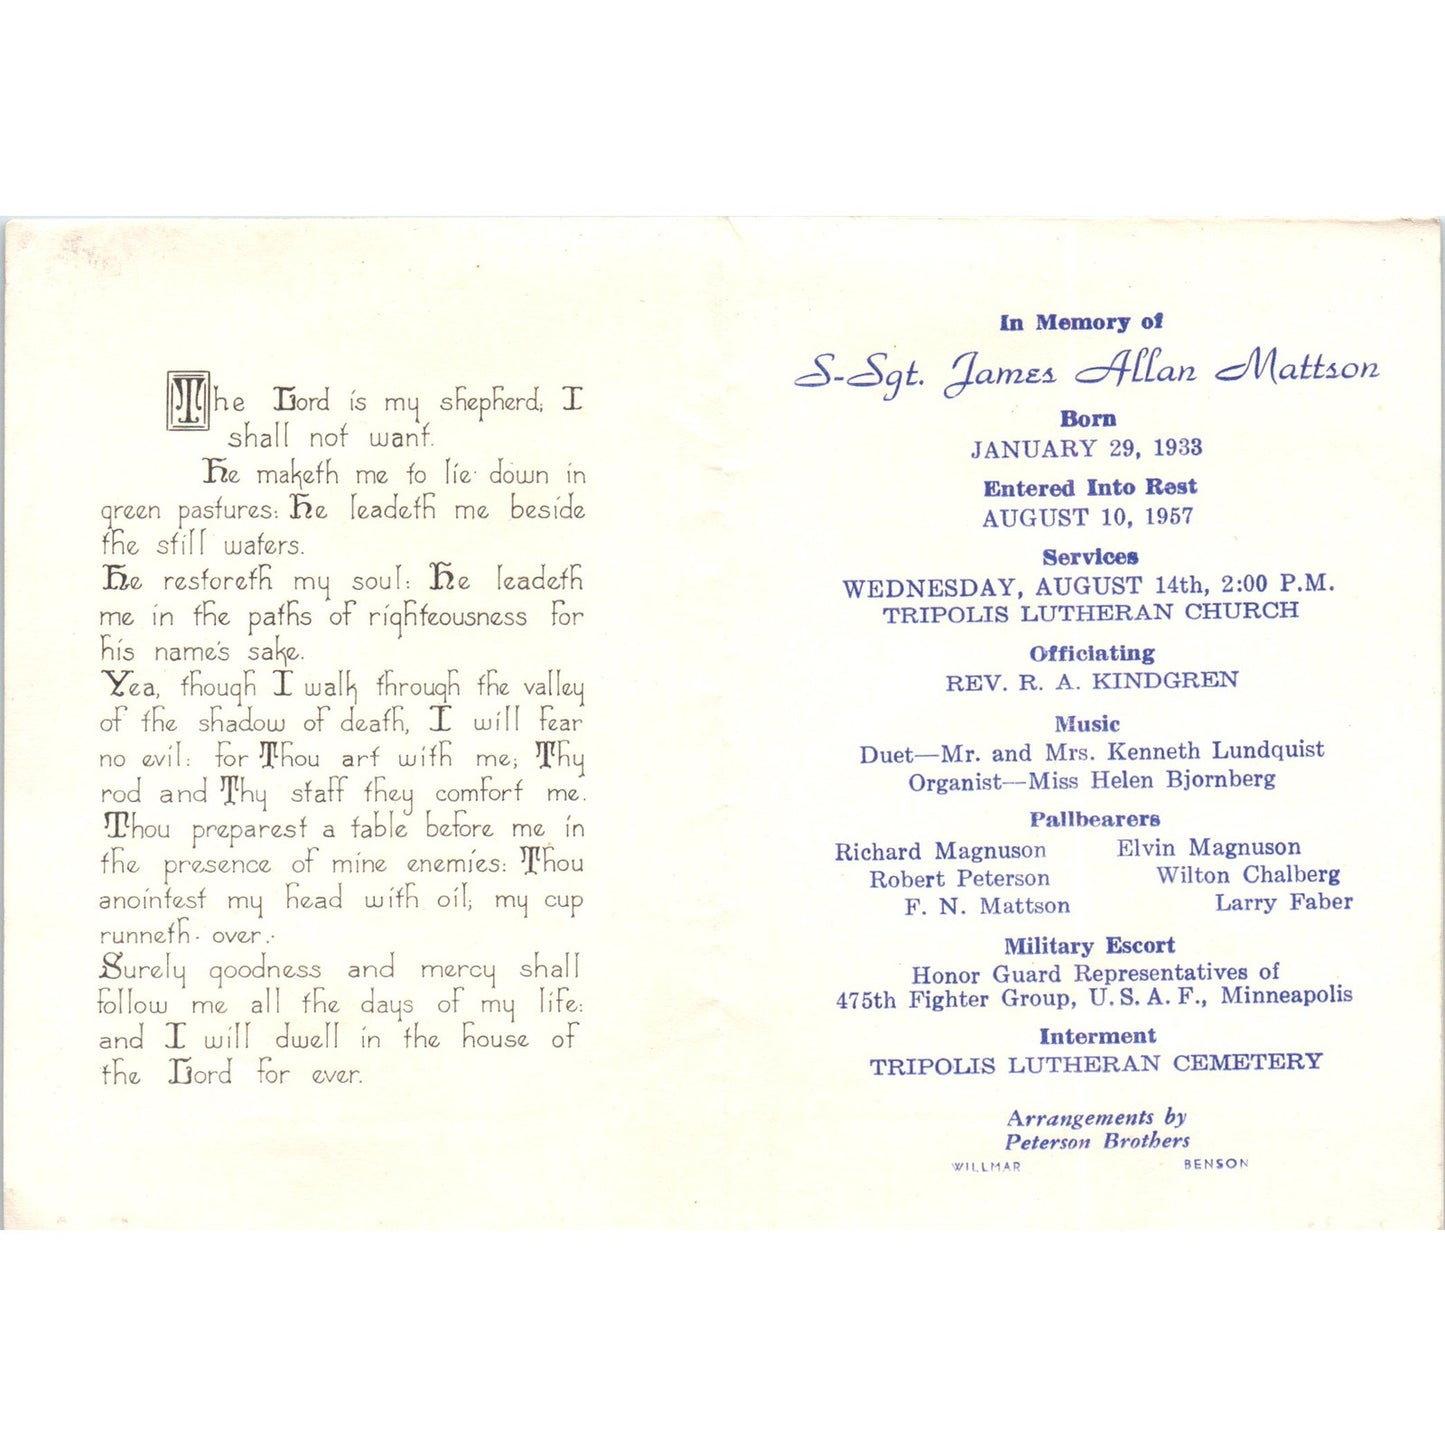 The Lord is my shepherd; I
shall not want.
He maketh me to lie down in
green pastures: He leadeth me beside
the still waters.
He restoreth my soul: He leadeth
me in the paths of righteousness for
his name's sake.
Yea, though I walk through the valley
of the shadow of death, I will fear
no evil: for Thou art with me; Thy
rod and Thy staff they comfort me.
Thou preparest a table before me in
the presence of mine enemies: Thou
anointest my head with oil; my cup
runneth over.
Surely goodness and mercy shall
follow me all the days of my life:
and I will dwell in the house of
the Lord for ever.
In Memory of
S-Sgt. James Allan Mattson
Born
JANUARY 29, 1933
Entered Into Rest
AUGUST 10, 1957
Services
WEDNESDAY, AUGUST 14th, 2:00 P.M.
TRIPOLIS LUTHERAN CHURCH
Officiating
REV. R. A. KINDGREN
Music
Duet—Mr. and Mrs. Kenneth Lundquist
Organist—Miss Helen Bjornberg
Pallbearers
Richard Magnuson Elvin Magnuson
Robert Peterson Wilton Chalberg
F. N. Mattson Larry Faber
Military Escort
Honor Guard Representatives of
475th Fighter Group, U. S. A. F., Minneapolis
Interment
TRIPOLIS LUTHERAN CEMETERY
Arrangements by
Peterson Brothers
WILLMAR BENSON